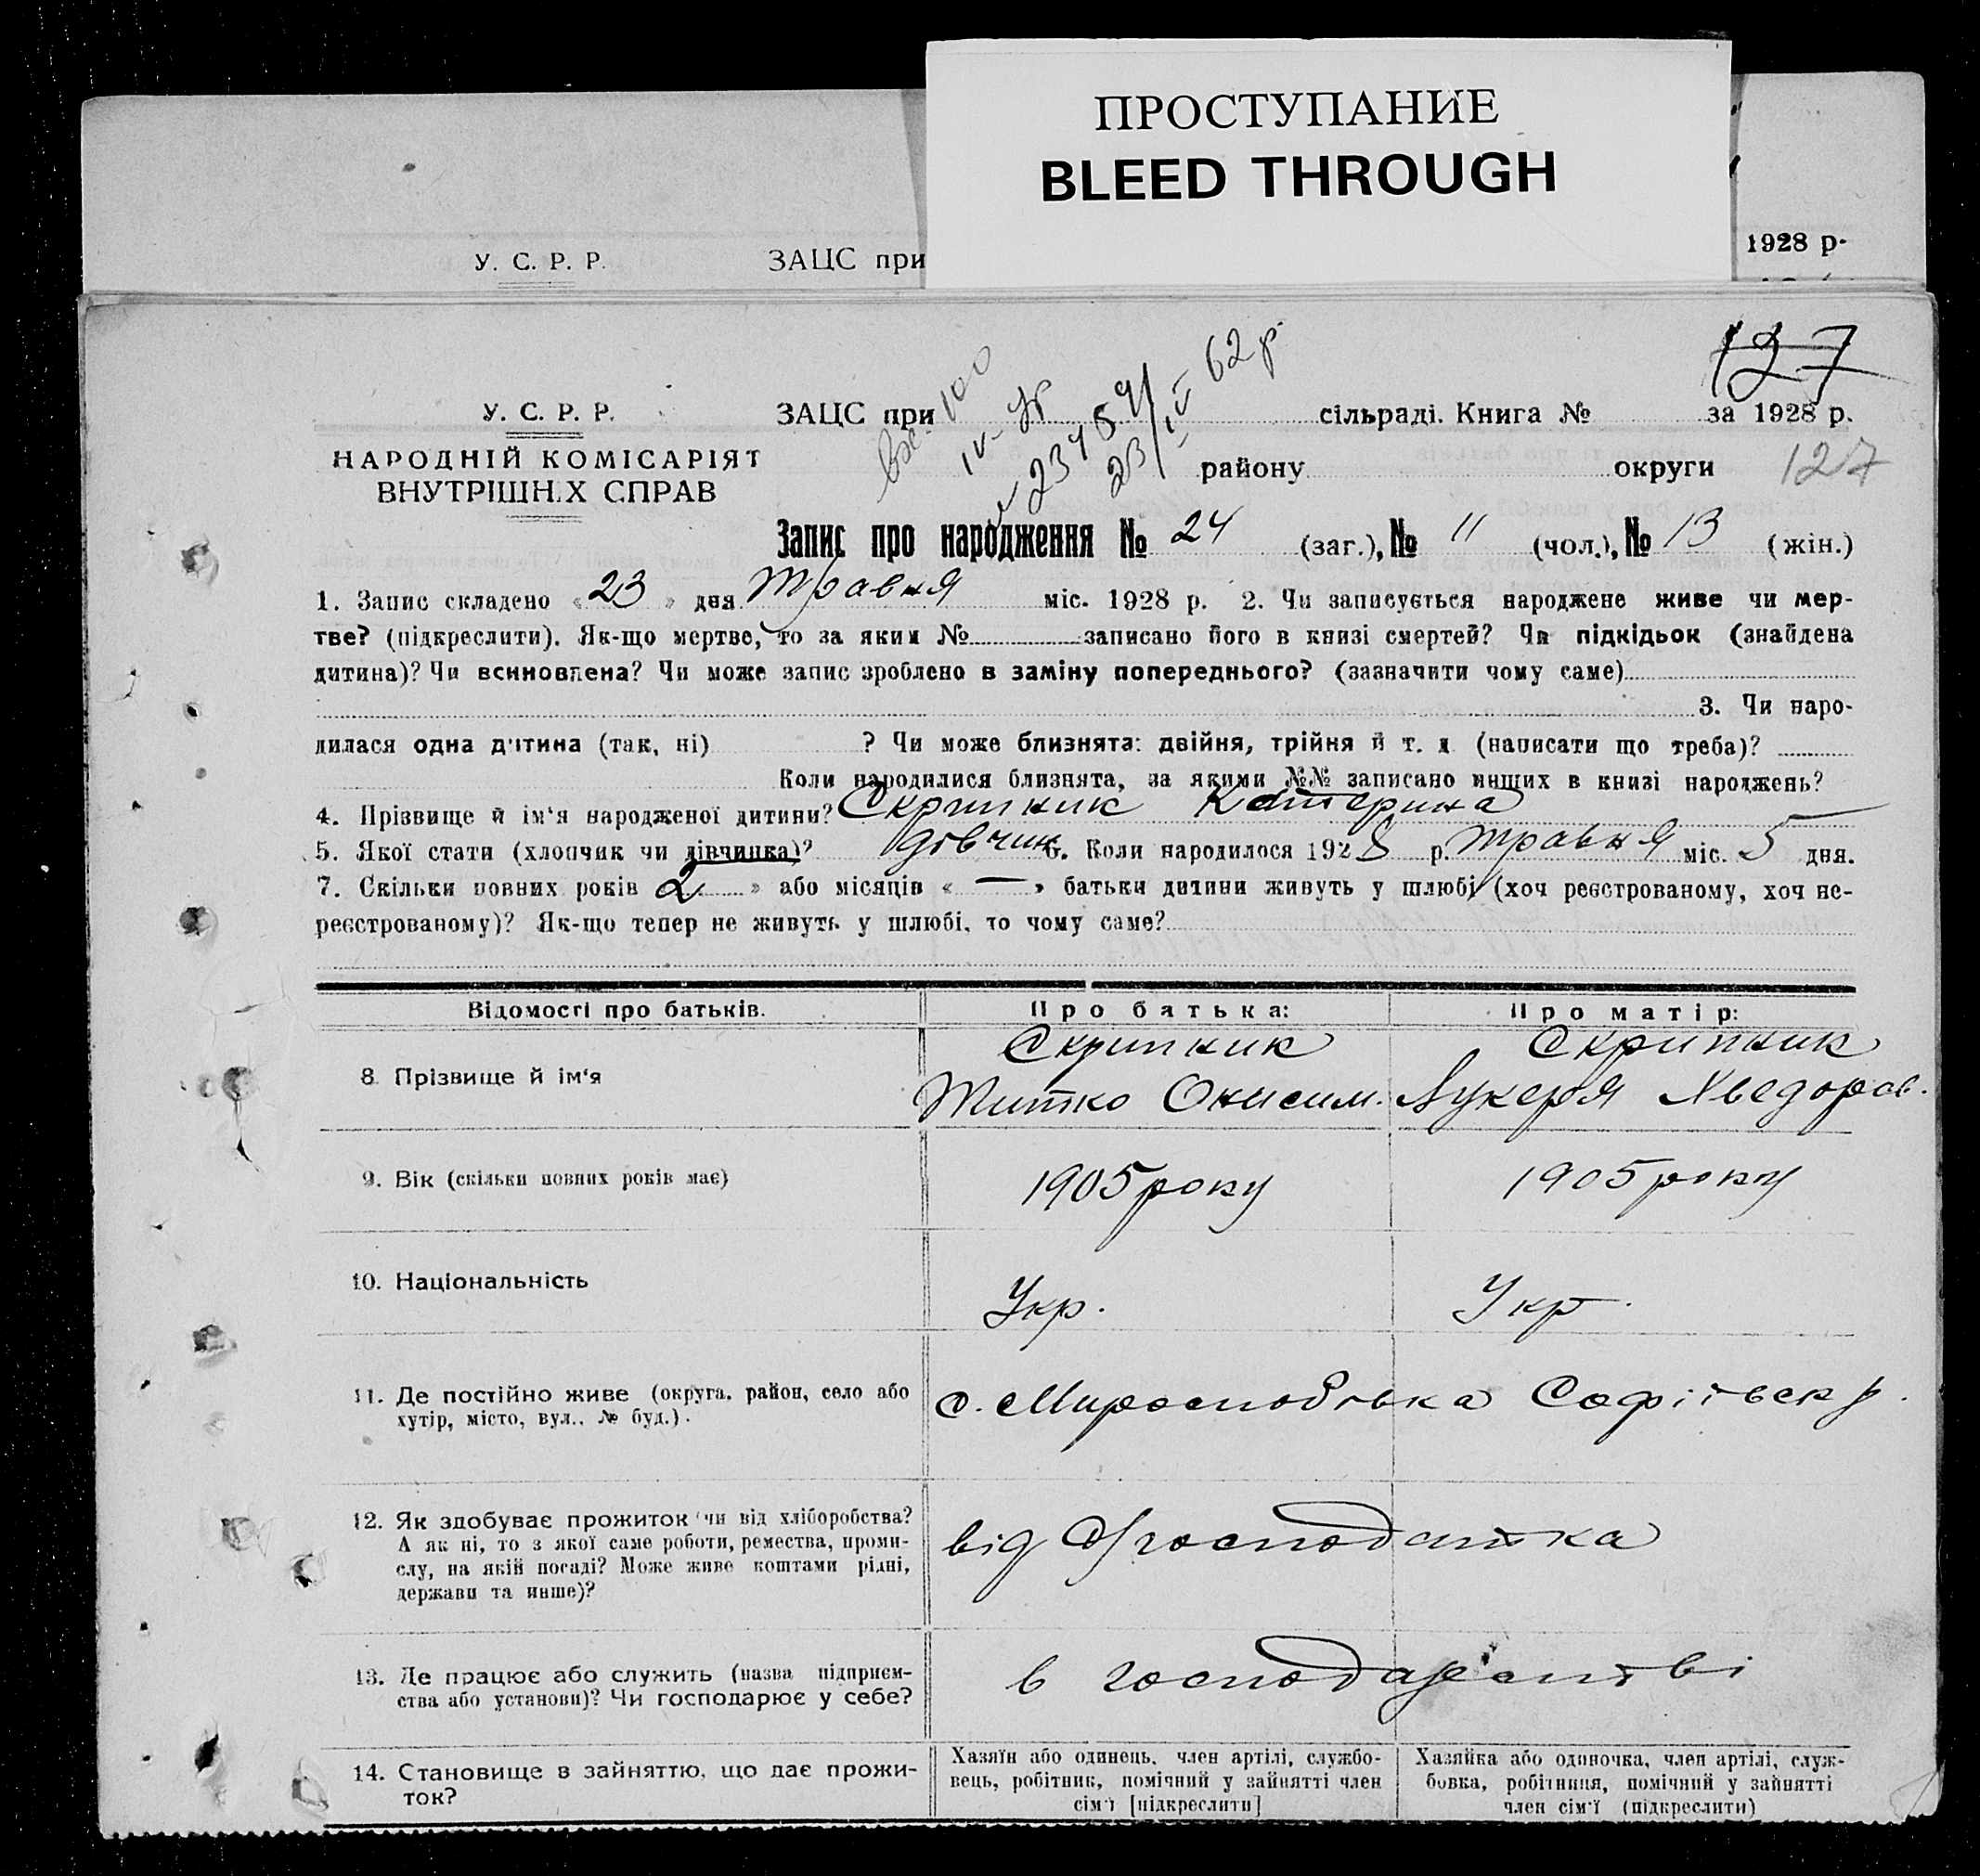 ПРОСТУПАНИЕ
BLEED THROUGH
У. С. Р. Р. ЗАЦС при 1928 р.
127
У. С. Р. Р. ЗАЦС при сільраді. Книга № за 1928 р.
НАРОДНІЙ КОМІСАРІЯТ району округи 127
ВНУТРІШНІХ СПРАВ
Вх. 100
23/IV 62 р.
Запис про народження № 24 (заг.), № 11 (чол.), № 13 (жін.)
1. Запис складено «23» дня Травня міс. 1928 р. 2. Чи записується народжене живе чи мер-
тве? (підкреслити). Як-що мертве, то за яким № записано його в книзі смертей? Чи підкідьок (знайдена
дитина)? Чи всиновлена? Чи може запис зроблено в заміну попереднього? (зазначити чому саме)
3. Чи наро-
дилася одна дитина (так, ні) ? Чи може близнята: двійня, трійня й т. д. (написати що треба)?
Коли народилися близнята, за якими №№ записано инших в книзі народжень?
4. Прізвище й ім'я народженої дитини? Скрипник Катерина
5. Якої стати (хлопчик чи дівчинка)? дівчин. 6. Коли народилося 1928 р. травня міс. 5 дня.
7. Скільки повних років 2 » або місяців « — » батьки дитини живуть у шлюбі (хоч реєстрованому, хоч не-
реєстрованому)? Як-що тепер не живуть у шлюбі, то чому саме?
Відомості про батьків. Про батька: Про матір:
8. Прізвище й ім'я Скрипник Скрипник
Титко Онисим. Лукерія Хведоров.
9. Вік (скільки повних років має) 1905 року 1905 року
10. Національність Укр. Укр.
11. Де постійно живе (округа, район, село або
хутір, місто, вул., № буд.). с. Миропо Софіївськ р.
12. Як здобуває прожиток (чи від хліборобства?
А як ні, то з якої саме роботи, ремества, проми-
слу, на якій посаді? Може живе коштами рідні,
держави та инше)? від
13. Де працює або служить (назва підприєм-
ства або установи)? Чи господарює у себе? в господарстві
14. Становище в зайняттю, що дає прожи-
ток?
Хазяїн або одинець, член артілі, службо-
вець, робітник, помічний у зайнятті член
сім'ї [підкреслити]
Хазяйка або одиночка, член артілі, служ-
бовка, робітниця, помічний у зайнятті
член сім'ї (підкреслити)